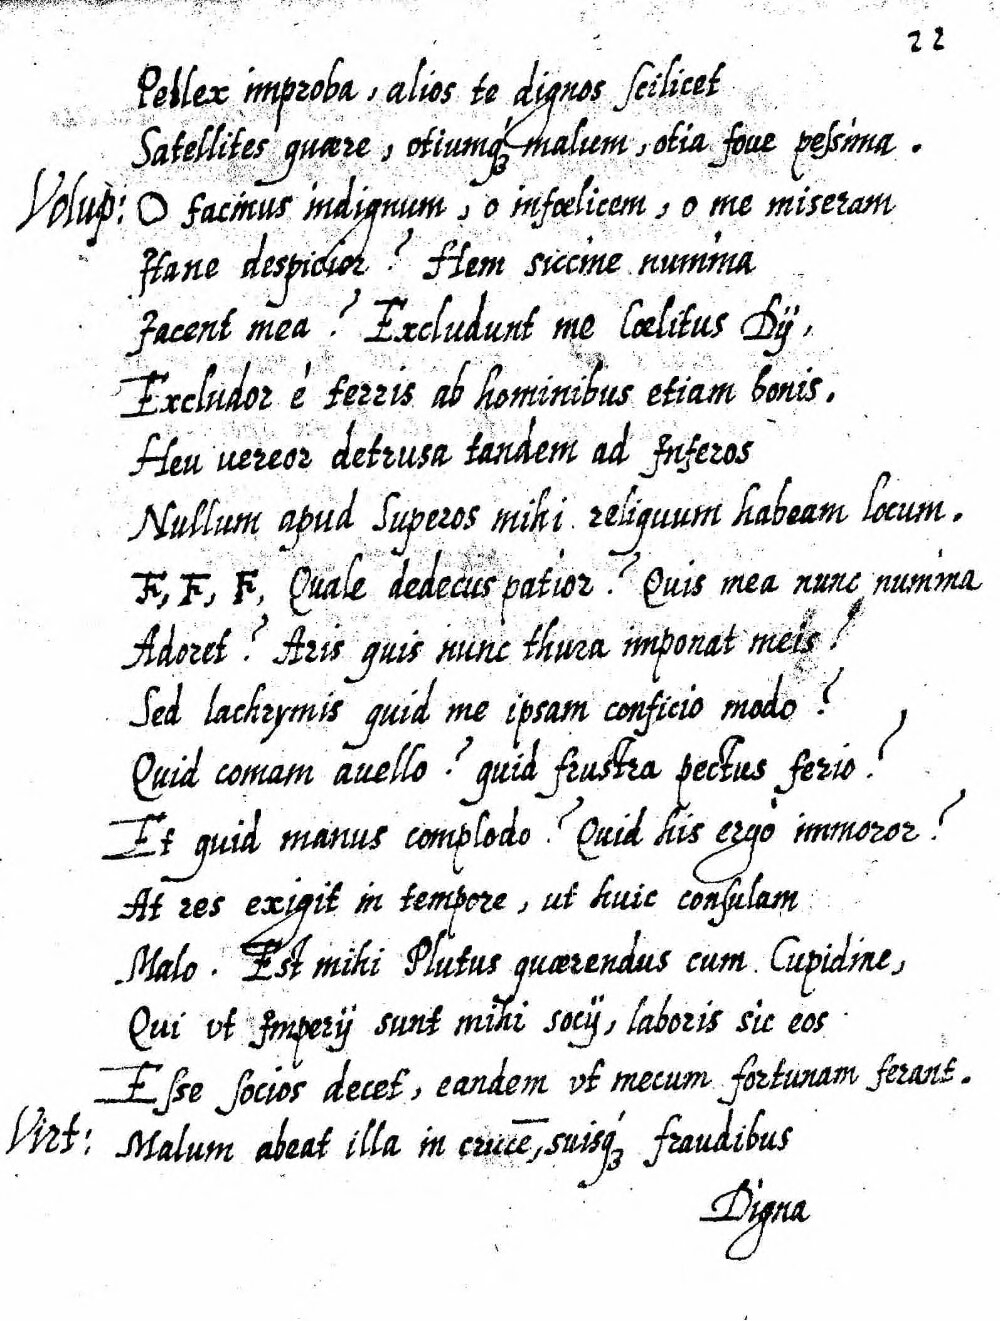 22
Pellex improba, alios te dignos scilicet
Satellites quære, otiumq́ꝫ malum, otia foue peſsima.
Volup: O facinus indignum, o infœlicem, o me miseram
Hane despicior? Hem siccine numina
Jacent mea? Excludunt me Cœlitus Dÿ,
Excludor è terris ab hominibus etiam bonis.
Heu uereor detrusa tandem ad Jnferos
Nullum apud Superos mihi reliquum habeam locum.
F, F, F, Quale dedecus patior? Quis mea nunc numina
Adoret? Aris quis nunc thura imponat meis?
Sed lachrymis quid me ipsam conficio modo?
Quid comam auello? quid frustra pectus ferio?
Et quid manus complodo? Quid his ergò immoror?
At res exigit in tempore, ut huic consulam
Malo. Est mihi Plutus quærendus cum Cupidine,
Qui vt Jmperÿ sunt mihi socÿ, laboris sic eos
Eſse socios decet, eandem vt mecum fortunam ferant.
Virt: Malum abeat illa in crucē, suisq́ꝫ fraudibus
Digna